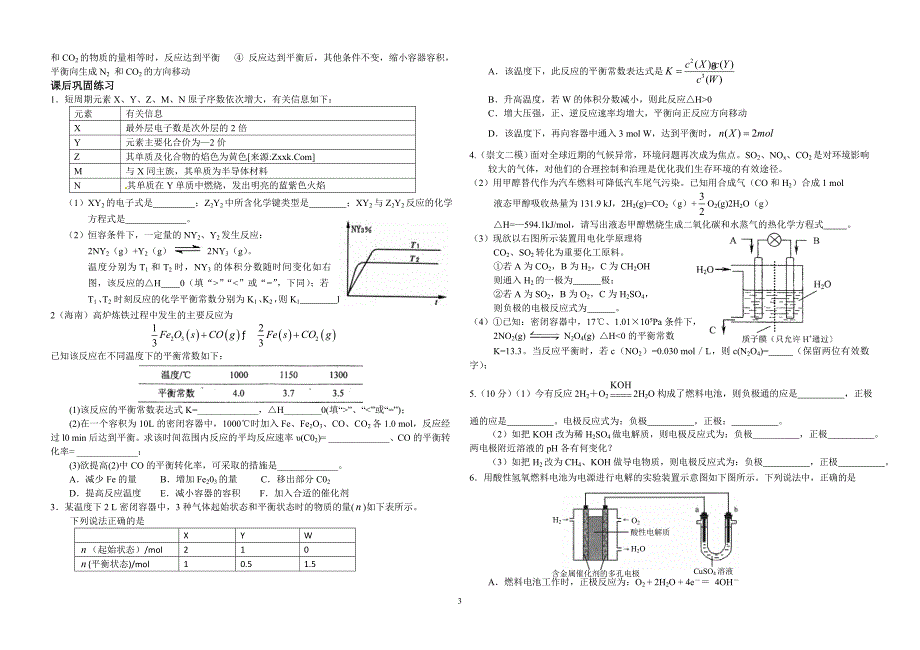 和 CO2 的物质的量相等时，反应达到平衡 ④ 反应达到平衡后，其他条件不变，缩小容器容积，
平衡向生成 N2 和 CO2 的方向移动
课后巩固练习
1．短周期元素 X、Y、Z、M、N 原子序数依次增大，有关信息如下：
元素 有关信息
X 最外层电子数是次外层的 2 倍
Y 元素主要化合价为—2 价
Z 其单质及化合物的焰色为黄色[来源:Zxxk.Com]
M 与 X 同主族，其单质为半导体材料
N 其单质在 Y 单质中燃烧，发出明亮的蓝紫色火焰
（1）XY2 的电子式是________；Z2Y2 中所含化学键类型是________；XY2 与 Z2Y2 反应的化学
方程式是____________。
（2）恒容条件下，一定量的 NY2、Y2 发生反应：
2NY2（g）+Y2（g） 2NY3（g）。
温度分别为 T1 和 T2 时，NY3 的体积分数随时间变化如右
图，该反应的△H____0（填“>”“<”或“=”，下同）；若
T1、T2 时刻反应的化学平衡常数分别为 K1、K2，则 K1______
NY3%
T1
T2
2（海南）高炉炼铁过程中发生的主要反应为
1/3 Fe2O3(s)+CO(g)ƒ 2/3 Fe(s)+CO2(g)
已知该反应在不同温度下的平衡常数如下：
温度/℃ 1000 1150 1300
平衡常数 4.0 3.7 3.5
(1)该反应的平衡常数表达式 K=____________，△H_______0(填“>”、“<”或“=”)；
(2)在一个容积为 10L 的密闭容器中，1000℃时加入 Fe、Fe2O3、CO、CO2 各 1.0 mol，反应经
过 l0 min 后达到平衡。求该时间范围内反应的平均反应速率 υ(CO2)=____________、CO 的平衡转
化率=____________；
(3)欲提高(2)中 CO 的平衡转化率，可采取的措施是____________。
A．减少 Fe 的量 B．增加 Fe203 的量 C．移出部分 C02
D．提高反应温度 E．减小容器的容积 F．加入合适的催化剂
3．某温度下 2 L 密闭容器中，3 种气体起始状态和平衡状态时的物质的量(n)如下表所示。
下列说法正确的是
X Y W
n（起始状态）/mol 2 1 0
n(平衡状态)/mol 1 0.5 1.5
A．该温度下，此反应的平衡常数表达式是 K = c2(X)gc(Y) / c3(W)
B．升高温度，若 W 的体积分数减小，则此反应△H>0
C．增大压强，正、逆反应速率均增大，平衡向正反应方向移动
D．该温度下，再向容器中通入 3 mol W，达到平衡时，n(X)=2mol
4.（崇文二模）面对全球近期的气候异常，环境问题再次成为焦点。SO2、NOx、CO2 是对环境影响
较大的气体，对他们的合理控制和治理是优化我们生存环境的有效途径。
（2）用甲醇替代作为汽车燃料可降低汽车尾气污染。已知用合成气（CO 和 H2）合成 1 mol
液态甲醇吸收热量为 131.9 kJ，2H2(g)=CO2（g）+ 3/2 O2(g)2H2O（g）
△H=—594.1kJ/mol，请写出液态甲醇燃烧生成二氧化碳和水蒸气的热化学方程式_____。
（3）现欲以右图所示装置用电化学原理将
CO2、SO2 转化为重要化工原料。
①若 A 为 CO2，B 为 H2，C 为 CH2OH
则通入 H2 的一极为______极；
②若 A 为 SO2，B 为 O2，C 为 H2SO4，
则负极的电极反应式为______。
A
B
H2O
H2O
C
质子膜（只允许 H+通过）
（4）①已知：密闭容器中，17℃、1.01×10⁵Pa 条件下，
2NO2(g) N2O4(g) △H<0 的平衡常数
K=13.3。当反应平衡时，若 c（NO2）=0.030 mol／L，则 c(N2O4)=_____（保留两位有效数
字）；
5.（10 分）（1）今有反应 2H2＋O2 KOH 2H2O 构成了燃料电池，则负极通的应是__________，正极
通的应是________。电极反应式为：负极__________，正极：________。
（2）如把 KOH 改为稀 H2SO4 做电解质，则电极反应式为：负极__________，正极__________。
两电极附近溶液的 pH 各有何变化？
（3）如把 H2 改为 CH4、KOH 做导电物质，则电极反应式为：负极__________，正极__________，
6．用酸性氢氧燃料电池为电源进行电解的实验装置示意图如下图所示。下列说法中，正确的是
H2
O2
酸性电解质
H2O
含金属催化剂的多孔电极
a b
CuSO4 溶液
A．燃料电池工作时，正极反应为：O2 + 2H2O + 4e－＝ 4OH－
3